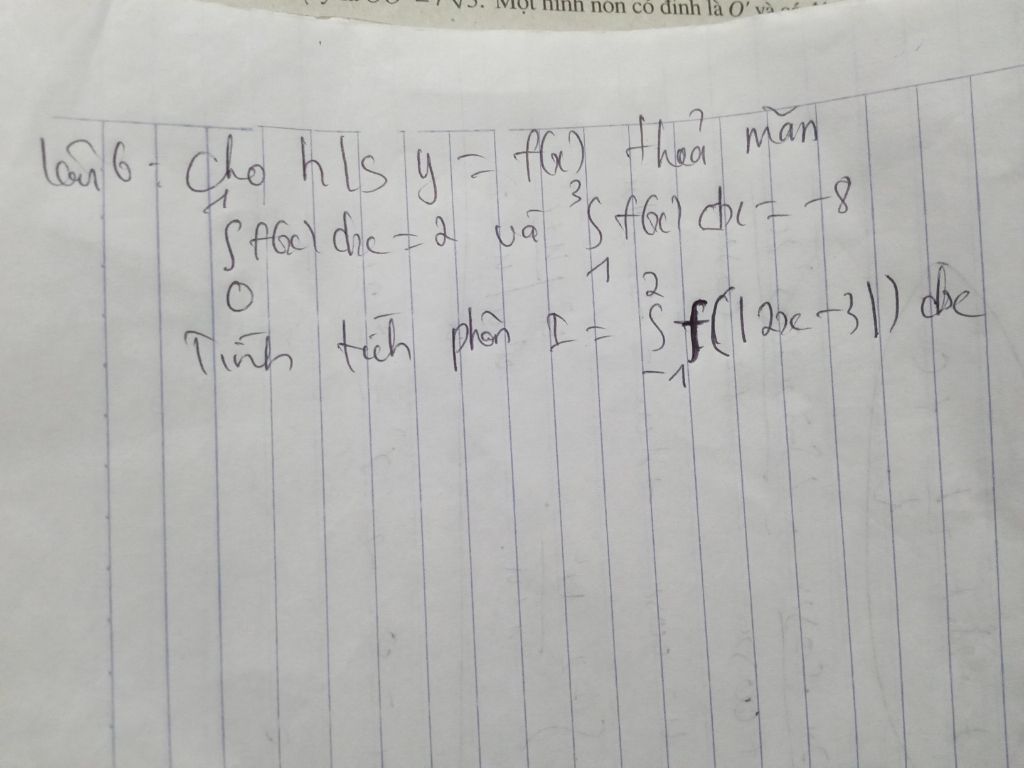 3. Một hình nón có đỉnh là O' và
Câu 6. Cho h/s y = f(x) thoả mãn
∫₀¹ f(x) dx = 2 và ∫₁³ f(x) dx = -8
Tính tích phân I = ∫₋₁² f(|2x-3|) dx